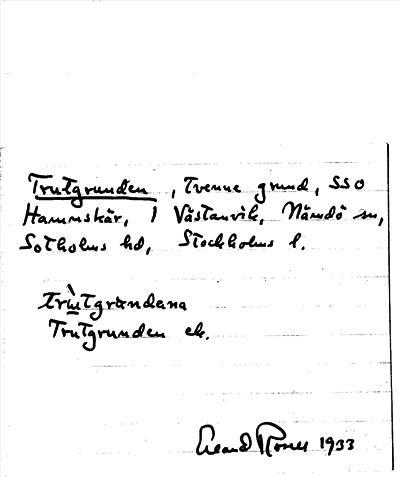 Trutgrunden, Tvenne grund, SSO
Hammskär, 1 Västanvik, Nämdö sn,
Sotholms hd, Stockholms l.
trùtgrưndana
Trutgrunden ek.
Erland Rosell 1933